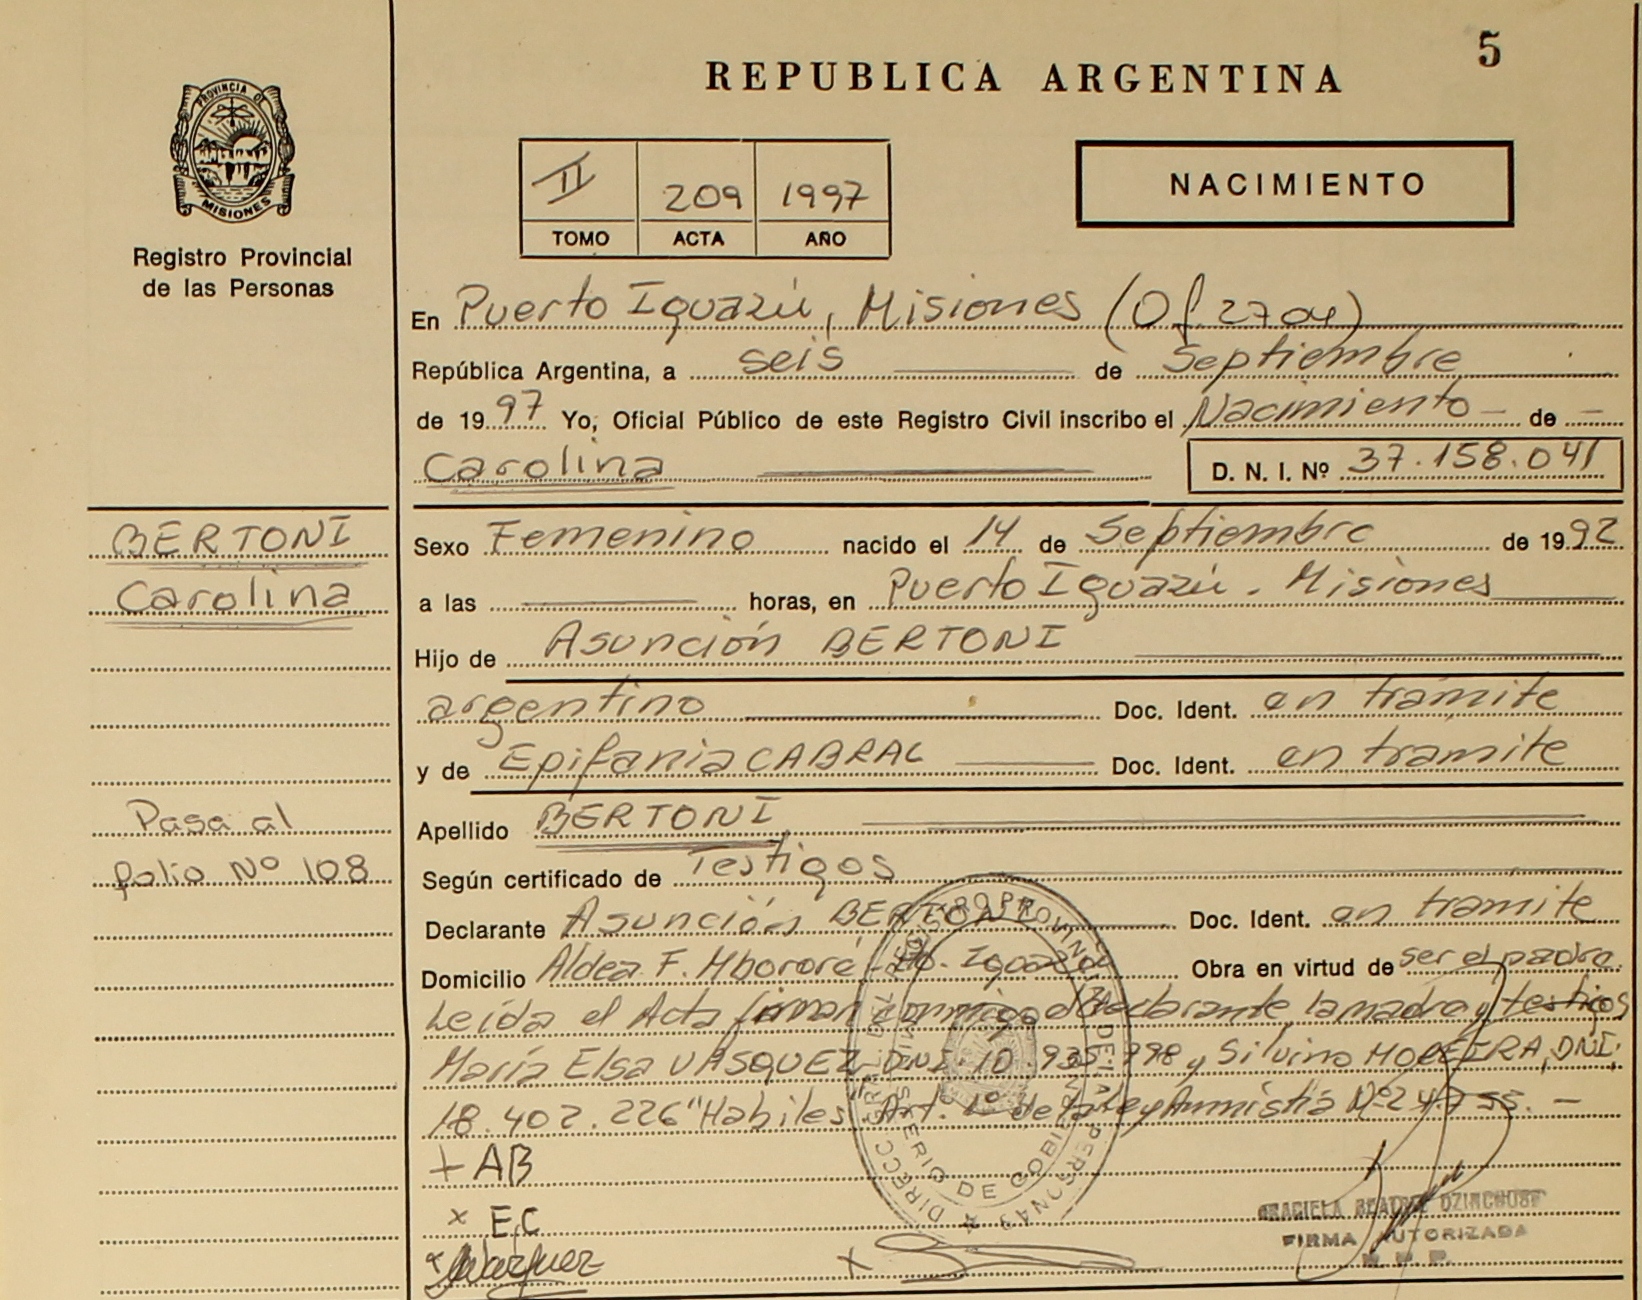 5
REPUBLICA ARGENTINA
PROVINCIA DE
MISIONES
Registro Provincial
de las Personas
II 209 1997
TOMO ACTA AÑO
NACIMIENTO
En Puerto Iguazú, Misiones (Of. 2704)
República Argentina, a seis de Septiembre
de 1997 Yo, Oficial Público de este Registro Civil inscribo el Nacimiento - de -
Carolina D. N. I. Nº 37.158.041
BERTONI
Carolina
Sexo Femenino nacido el 14 de Septiembre de 1992
a las horas, en Puerto Iguazú - Misiones
Hijo de Asunción BERTONI
argentino Doc. Ident. en tramite
y de Epifania CABRAL Doc. Ident. en tramite
Pasa al
folio Nº 108
Apellido BERTONI
Según certificado de Testigos
Declarante Asunción BERTONI Doc. Ident. en tramite
Domicilio Aldea F. Mbororé - Pto. Iguazú Obra en virtud de ser el padre.
Leída el Acta firman conmigo el declarante la madre y testigos
María Elsa VASQUEZ DNI. 10.935.798 y Silvino MOREIRA, DNI.
18.402.226 "Habiles" Art. 1º de la Ley Amnistía Nº 24.755. -
+ AB
x E.C
x Vazquez
x
FIRMA AUTORIZADA
R.P.P.